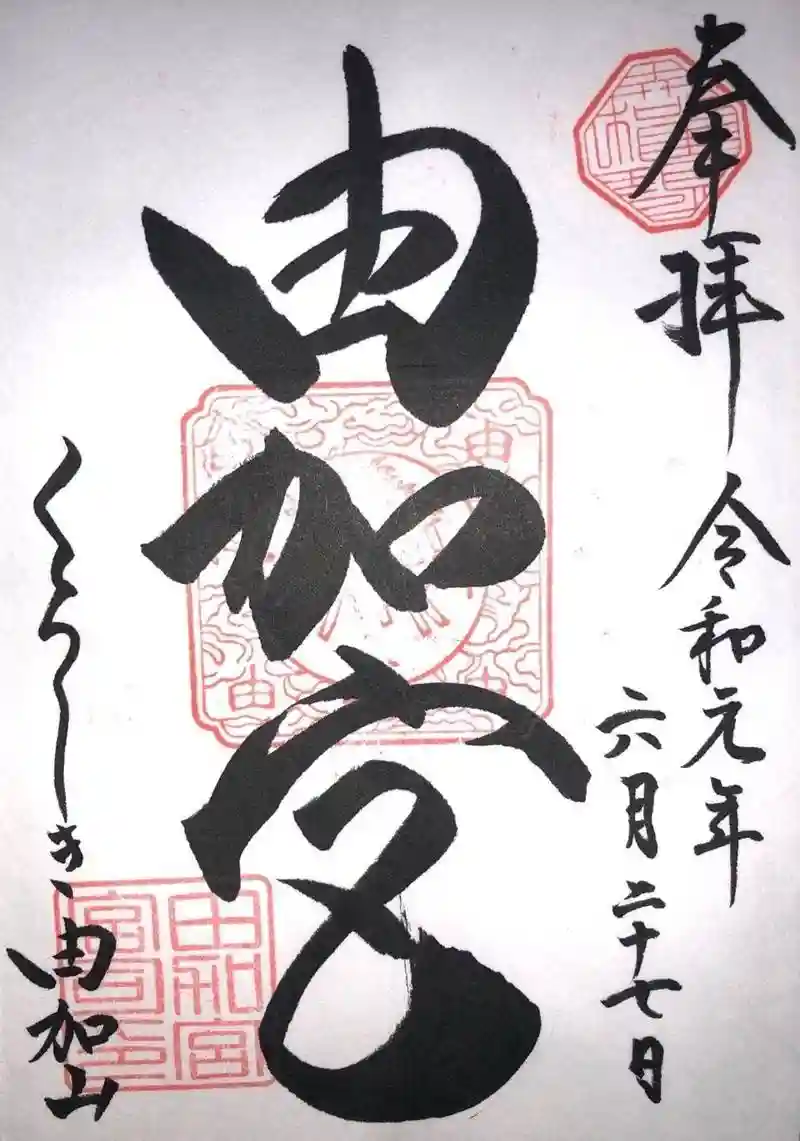 奉拝 令和元年
六月二十七日
由加宮
くらしき 由加山
由
由